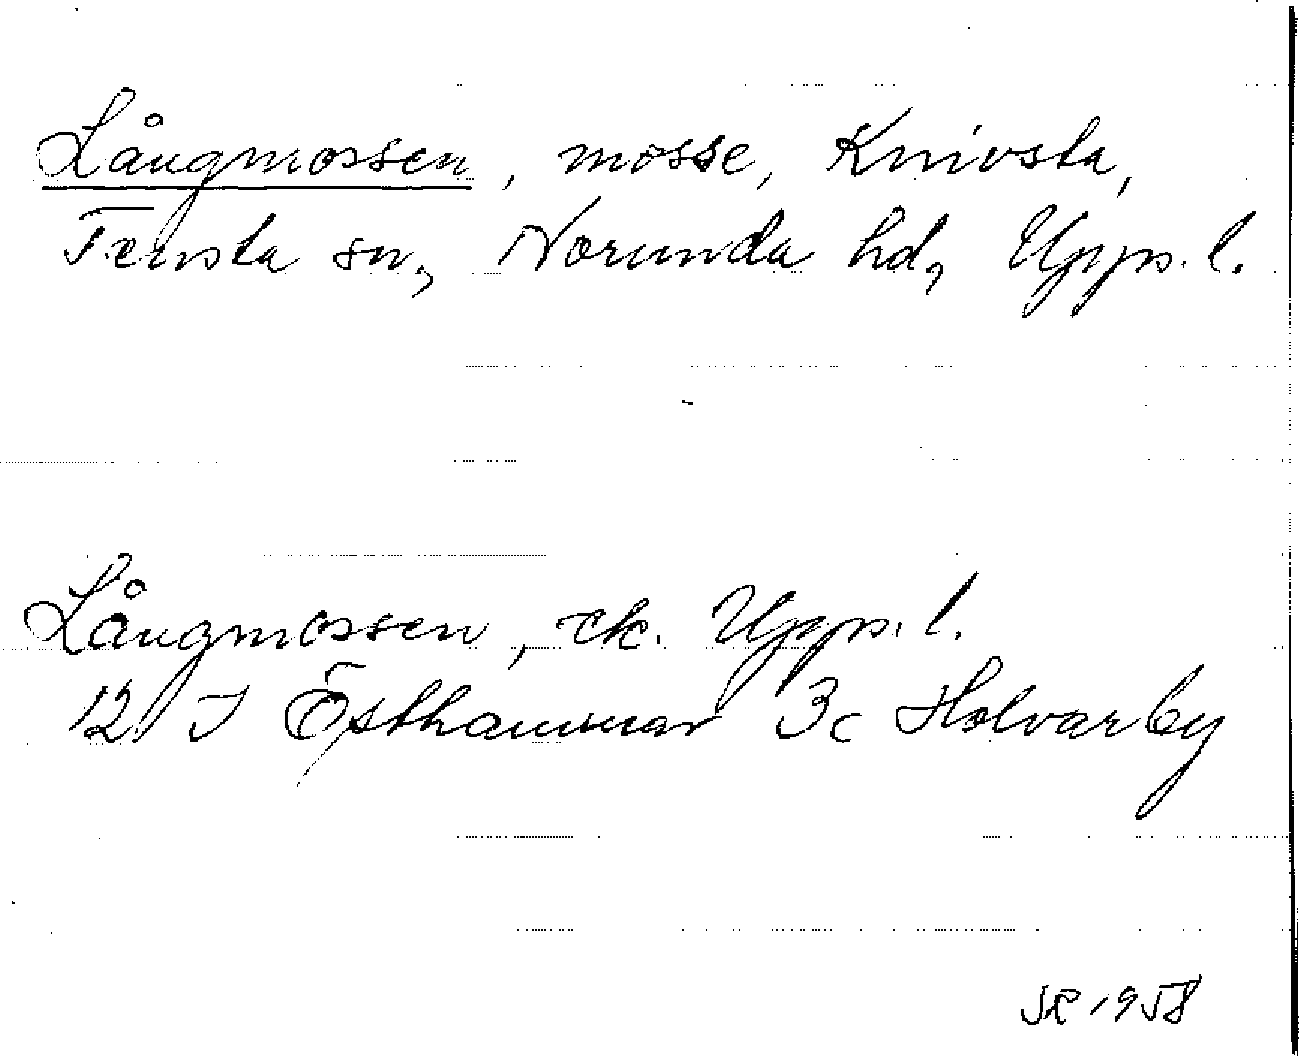 Långmossen, mosse, Knivsta,
Tensta sn, Norunda hd, Upps. l.
Långmossen, ek. Upps. l.
12 I Östhammar 3c Holvarby
1958